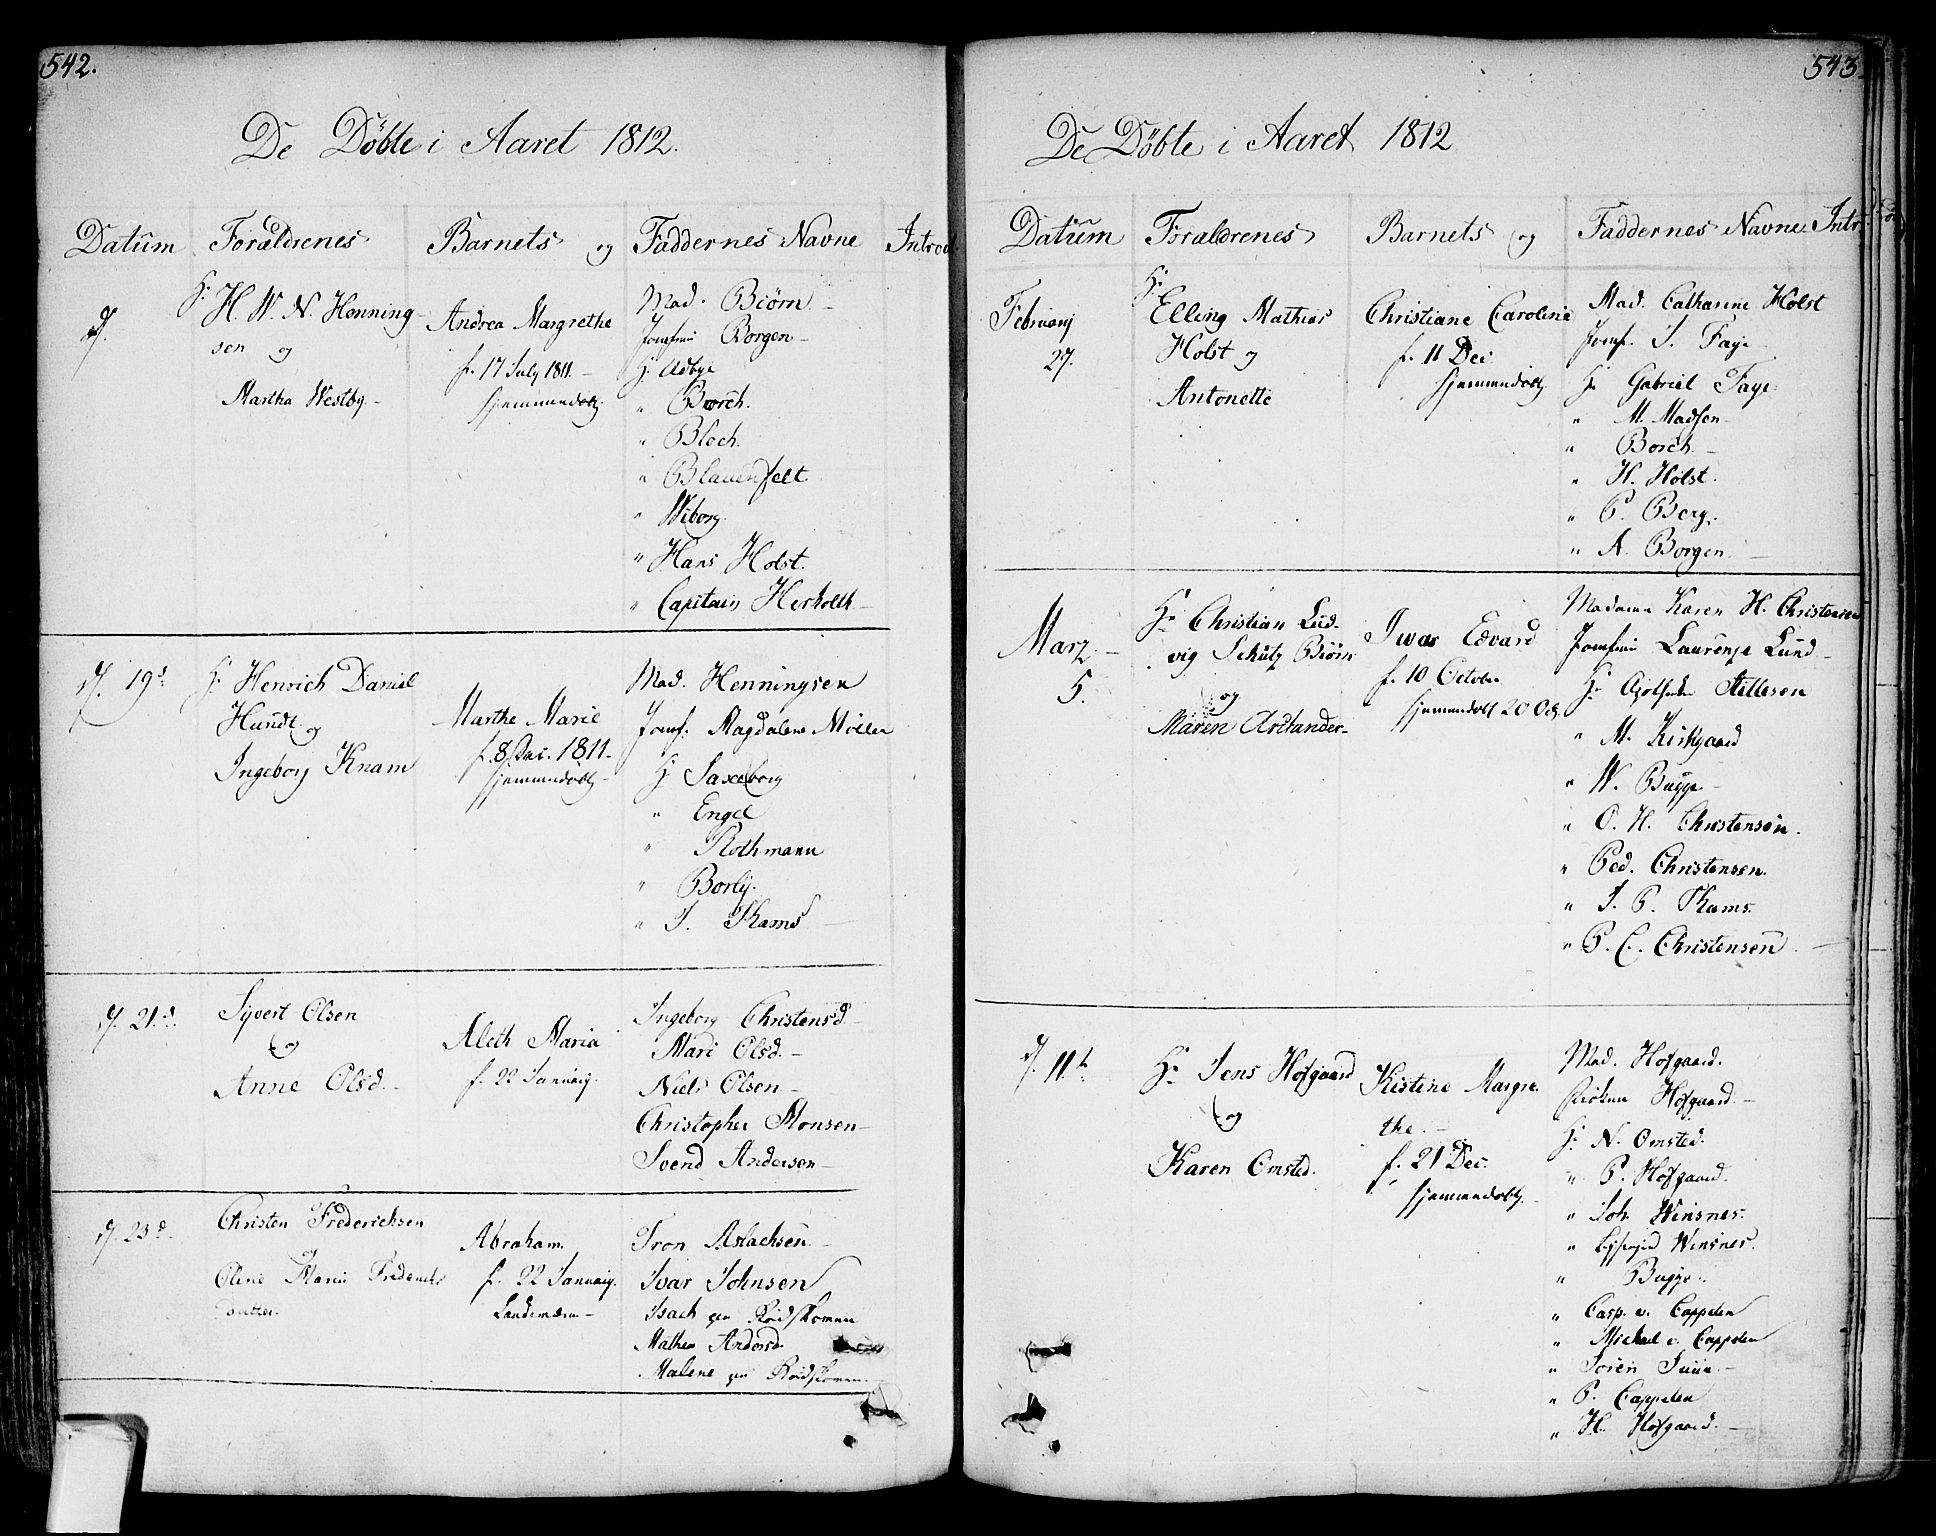 542.
De Döbte i Aaret 1812.
Datum Forældrenes Barnets og Faddernes Navne Introd
d.
Hr H. W. N. Henning
sen og
Martha Westby
Andrea Margrethe
f. 17 July 1811.
hjemmendøbt
Mad. Biørn
Jomfrue Borgen
Hr Aabye
" Borch.
" Bloch.
" Blauenfelt
" Wiborg.
" Hans Holst.
" Capitain Herholth
d. 19d.
Hr Henrich Daniel
Hundt og
Ingeborg Knam
Marthe Marie
f. 8 Dec. 1811.
hjemmendøbt
Mad. Henningsen
Jomf. Magdalene Möller
Hr Saxeborg
" Engel
" Rothmann
" Borly.
" J. Rams
d. 21.d.
Syvert Olsen
og
Anne Olsd.
Aleth Maria
f. 22 Januarij.
Ingeborg Christensd
Mari Olsd.
Niels Olsen
Christopher Monsen
Svend Andersen
d. 23d.
Christen Frederichsen
Olene Maria Frederichs
datter.
Abraham.
f. 22 Januarij.
Tron Aslachsen
Ivar Johnsen
Isach
Mathea Andersd.
Malene
543
De Döbte i Aaret 1812
Datum Forældrenes Barnets og Faddernes Navne Intr.
Februarij
27.
Hr
Elling Mathias
Holst og
Antonette
Christiane Caroline
f. 11 Dec
hjemmendøbt
Mad. Catharine Holst
Jomf. I. Faye
Hr Gabriel Faye
" M. Madsen
" Borch.
" H. Holst.
" P. Berg.
" A. Borgen
Marz.
5.
Hr Christian Lud
vig Schütz Biörn
og
Maren Arctander
Iwar Edvard
f. 10 October
hjemmendøbt 20 Oct.
Madame Karen H. Christensen
Jomfrue Laurenze Lund
Hr Apotheker Tillesen
" M. Kirkgaard
" W. Bugge
" O. H. Christensen.
" Ped. Christensen.
" J. P. Rams.
" P. C. Christensen
d. 11te
Hr Jens Hofgaard
og
Karen Omsted.
Kistine Margre
the.
f. 21 Dec.
hjemmendøbt.
Mad. Hofgaard.
Frøken Hofgaard.
Hr N. Omsted.
" P. Hofgaard.
" Joh. Winsnes.
" Winsnes.
" Bugge.
" Casp. v. Cappelen
" Michael v. Cappelen
" Soren Juue
" P. Cappelen
" H. Hofgaard.